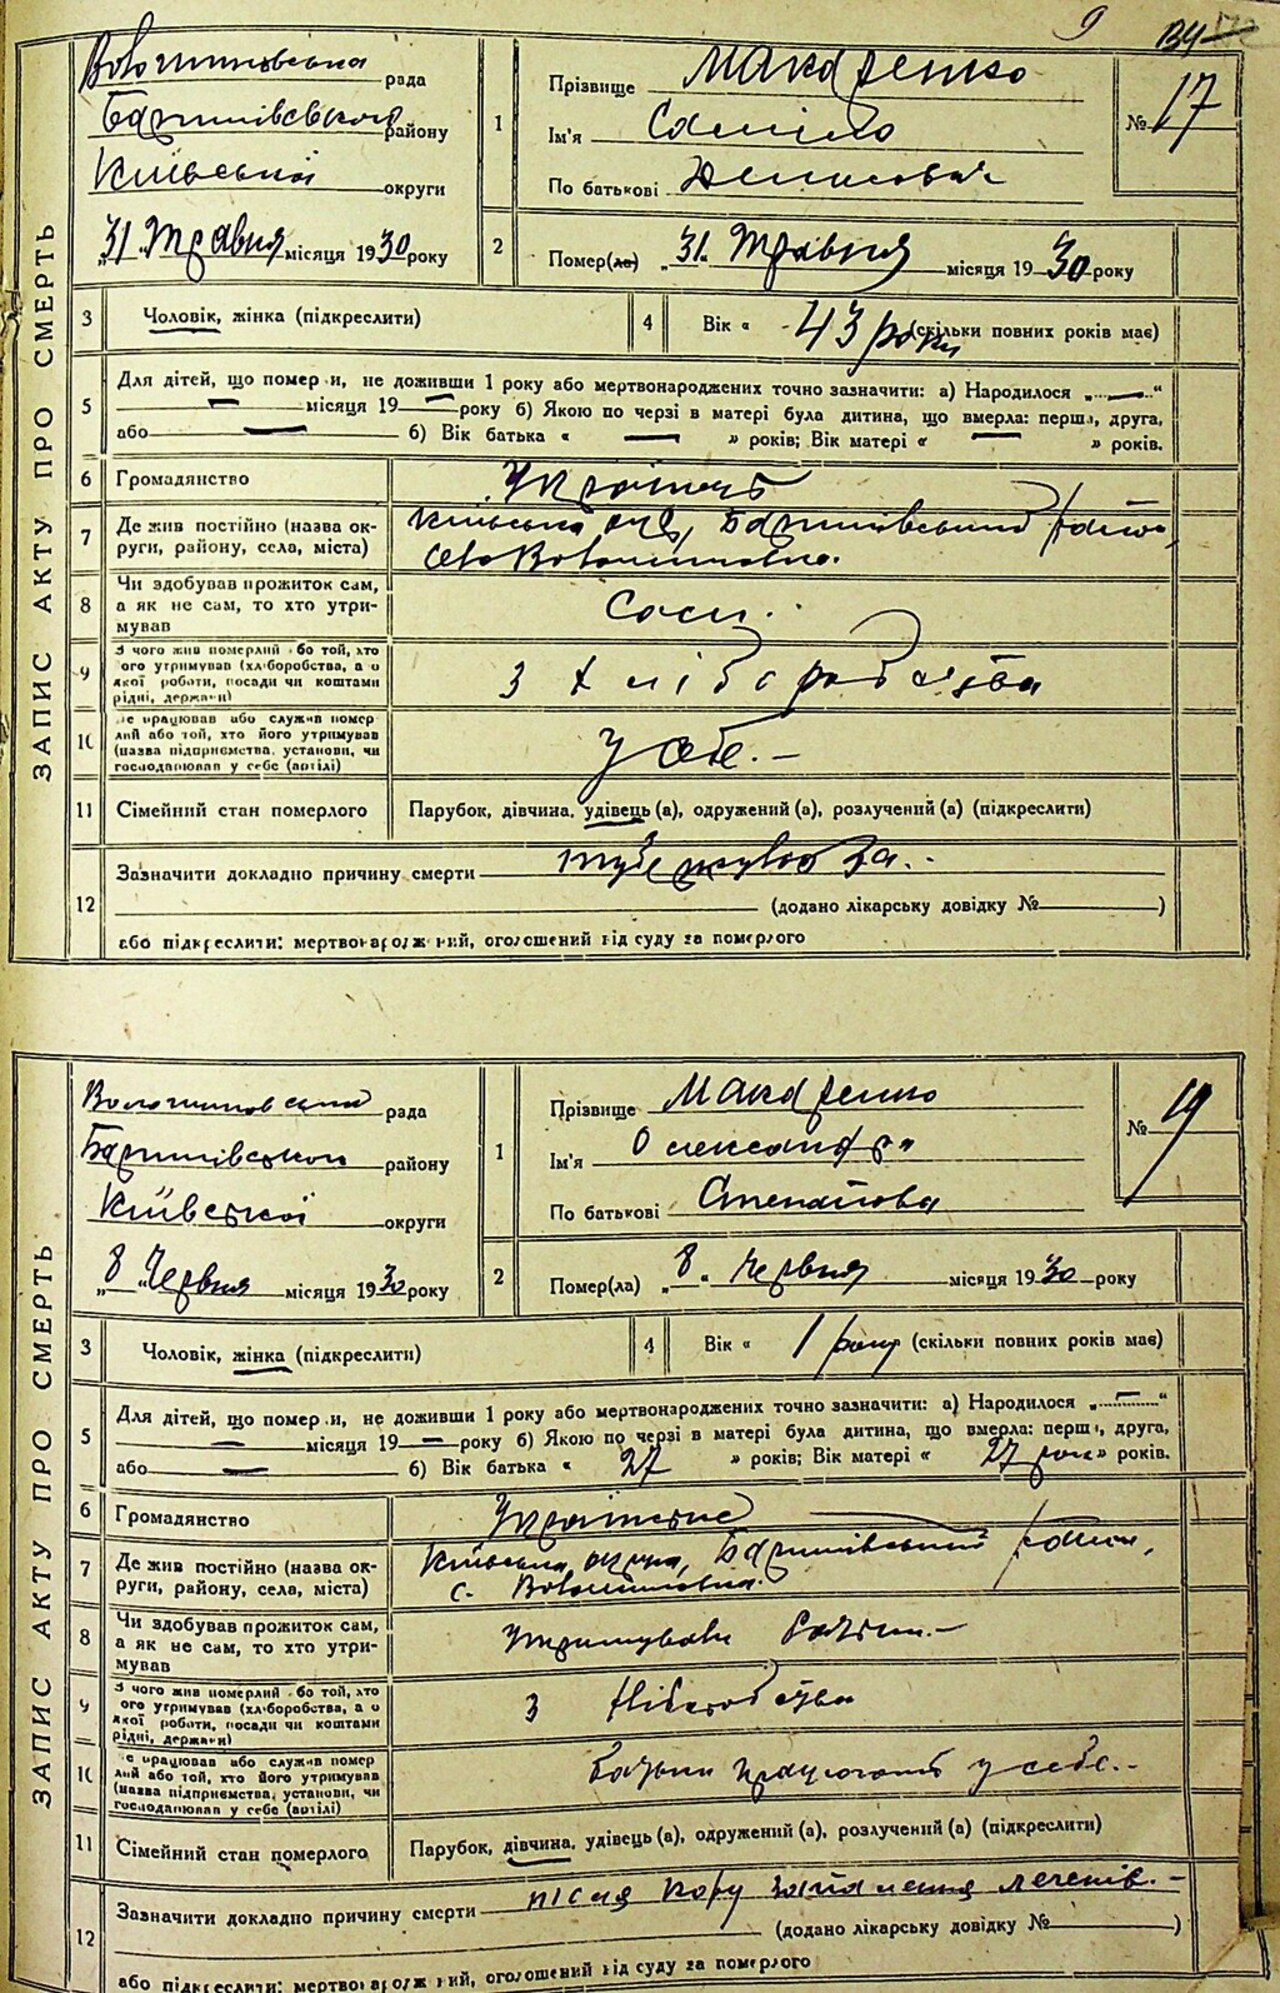 9 134
ЗАПИС АКТУ ПРО СМЕРТЬ
Волошиновська рада
Баришівського району
Київської округи
„31„ Травня місяця 1930 року
1 Прізвище Макаренко
Ім'я Данило
По батькові Денисович
№ 17
2 Помер(ла) „31„ Травня місяця 1930 року
3 Чоловік, жінка (підкреслити)
4 Вік « 43 роки (скільки повних років має)
5 Для дітей, що померли, не доживши 1 року або мертвонароджених точно зазначити: а) Народилося „—“
— місяця 19— року б) Якою по черзі в матері була дитина, що вмерла: перша, друга,
або — б) Вік батька « — » років; Вік матері « — » років.
6 Громадянство Українець
7 Де жив постійно (назва округи, району, села, міста) Київська окр, Баришівський район,
село Волошиновка.
8 Чи здобував прожиток сам,
а як не сам, то хто утри-
мував
Сам.
9 З чого жив померлий або той, хто
його утримував (хліборобства, а о
якої роботи, посади чи коштами
рідні, держави)
З хліборобства
10 Де працював або служив помер
лий або той, хто його утримував
(назва підприємства, установи, чи
господарював у себе (артілі)
У себе. –
11 Сімейний стан померлого Парубок, дівчина, удівець (а), одружений (а), розлучений (а) (підкреслити)
12 Зазначити докладно причину смерти туберкульоза. -
(додано лікарську довідку № )
або підкреслити: мертвонароджений, оголошений від суду за померлого
ЗАПИС АКТУ ПРО СМЕРТЬ
Волошиновська рада
Баришівського району
Київської округи
„8„ Червня місяця 1930 року
1 Прізвище Макаренко
Ім'я Олександра
По батькові Степанова
№ 19
2 Помер(ла) „8„ Червня місяця 1930 року
3 Чоловік, жінка (підкреслити)
4 Вік « 1 року (скільки повних років має)
5 Для дітей, що померли, не доживши 1 року або мертвонароджених точно зазначити: а) Народилося „—“
— місяця 19— року б) Якою по черзі в матері була дитина, що вмерла: перша, друга,
або — б) Вік батька « 27 » років; Вік матері « 27 рок » років.
6 Громадянство Українське
7 Де жив постійно (назва округи, району, села, міста) Київська округа, Баришівський район,
с. Волошиновка.
8 Чи здобував прожиток сам,
а як не сам, то хто утри-
мував
Утримували батьки. –
9 З чого жив померлий або той, хто
його утримував (хліборобства, а о
якої роботи, посади чи коштами
рідні, держави)
З хліборобства
10 Де працював або служив помер
лий або той, хто його утримував
(назва підприємства, установи, чи
господарював у себе (артілі)
Батьки працюють у себе. -
11 Сімейний стан померлого Парубок, дівчина, удівець (а), одружений (а), розлучений (а) (підкреслити)
12 Зазначити докладно причину смерти після кору запалення легенів. -
(додано лікарську довідку № )
або підкреслити: мертвонароджений, оголошений від суду за померлого